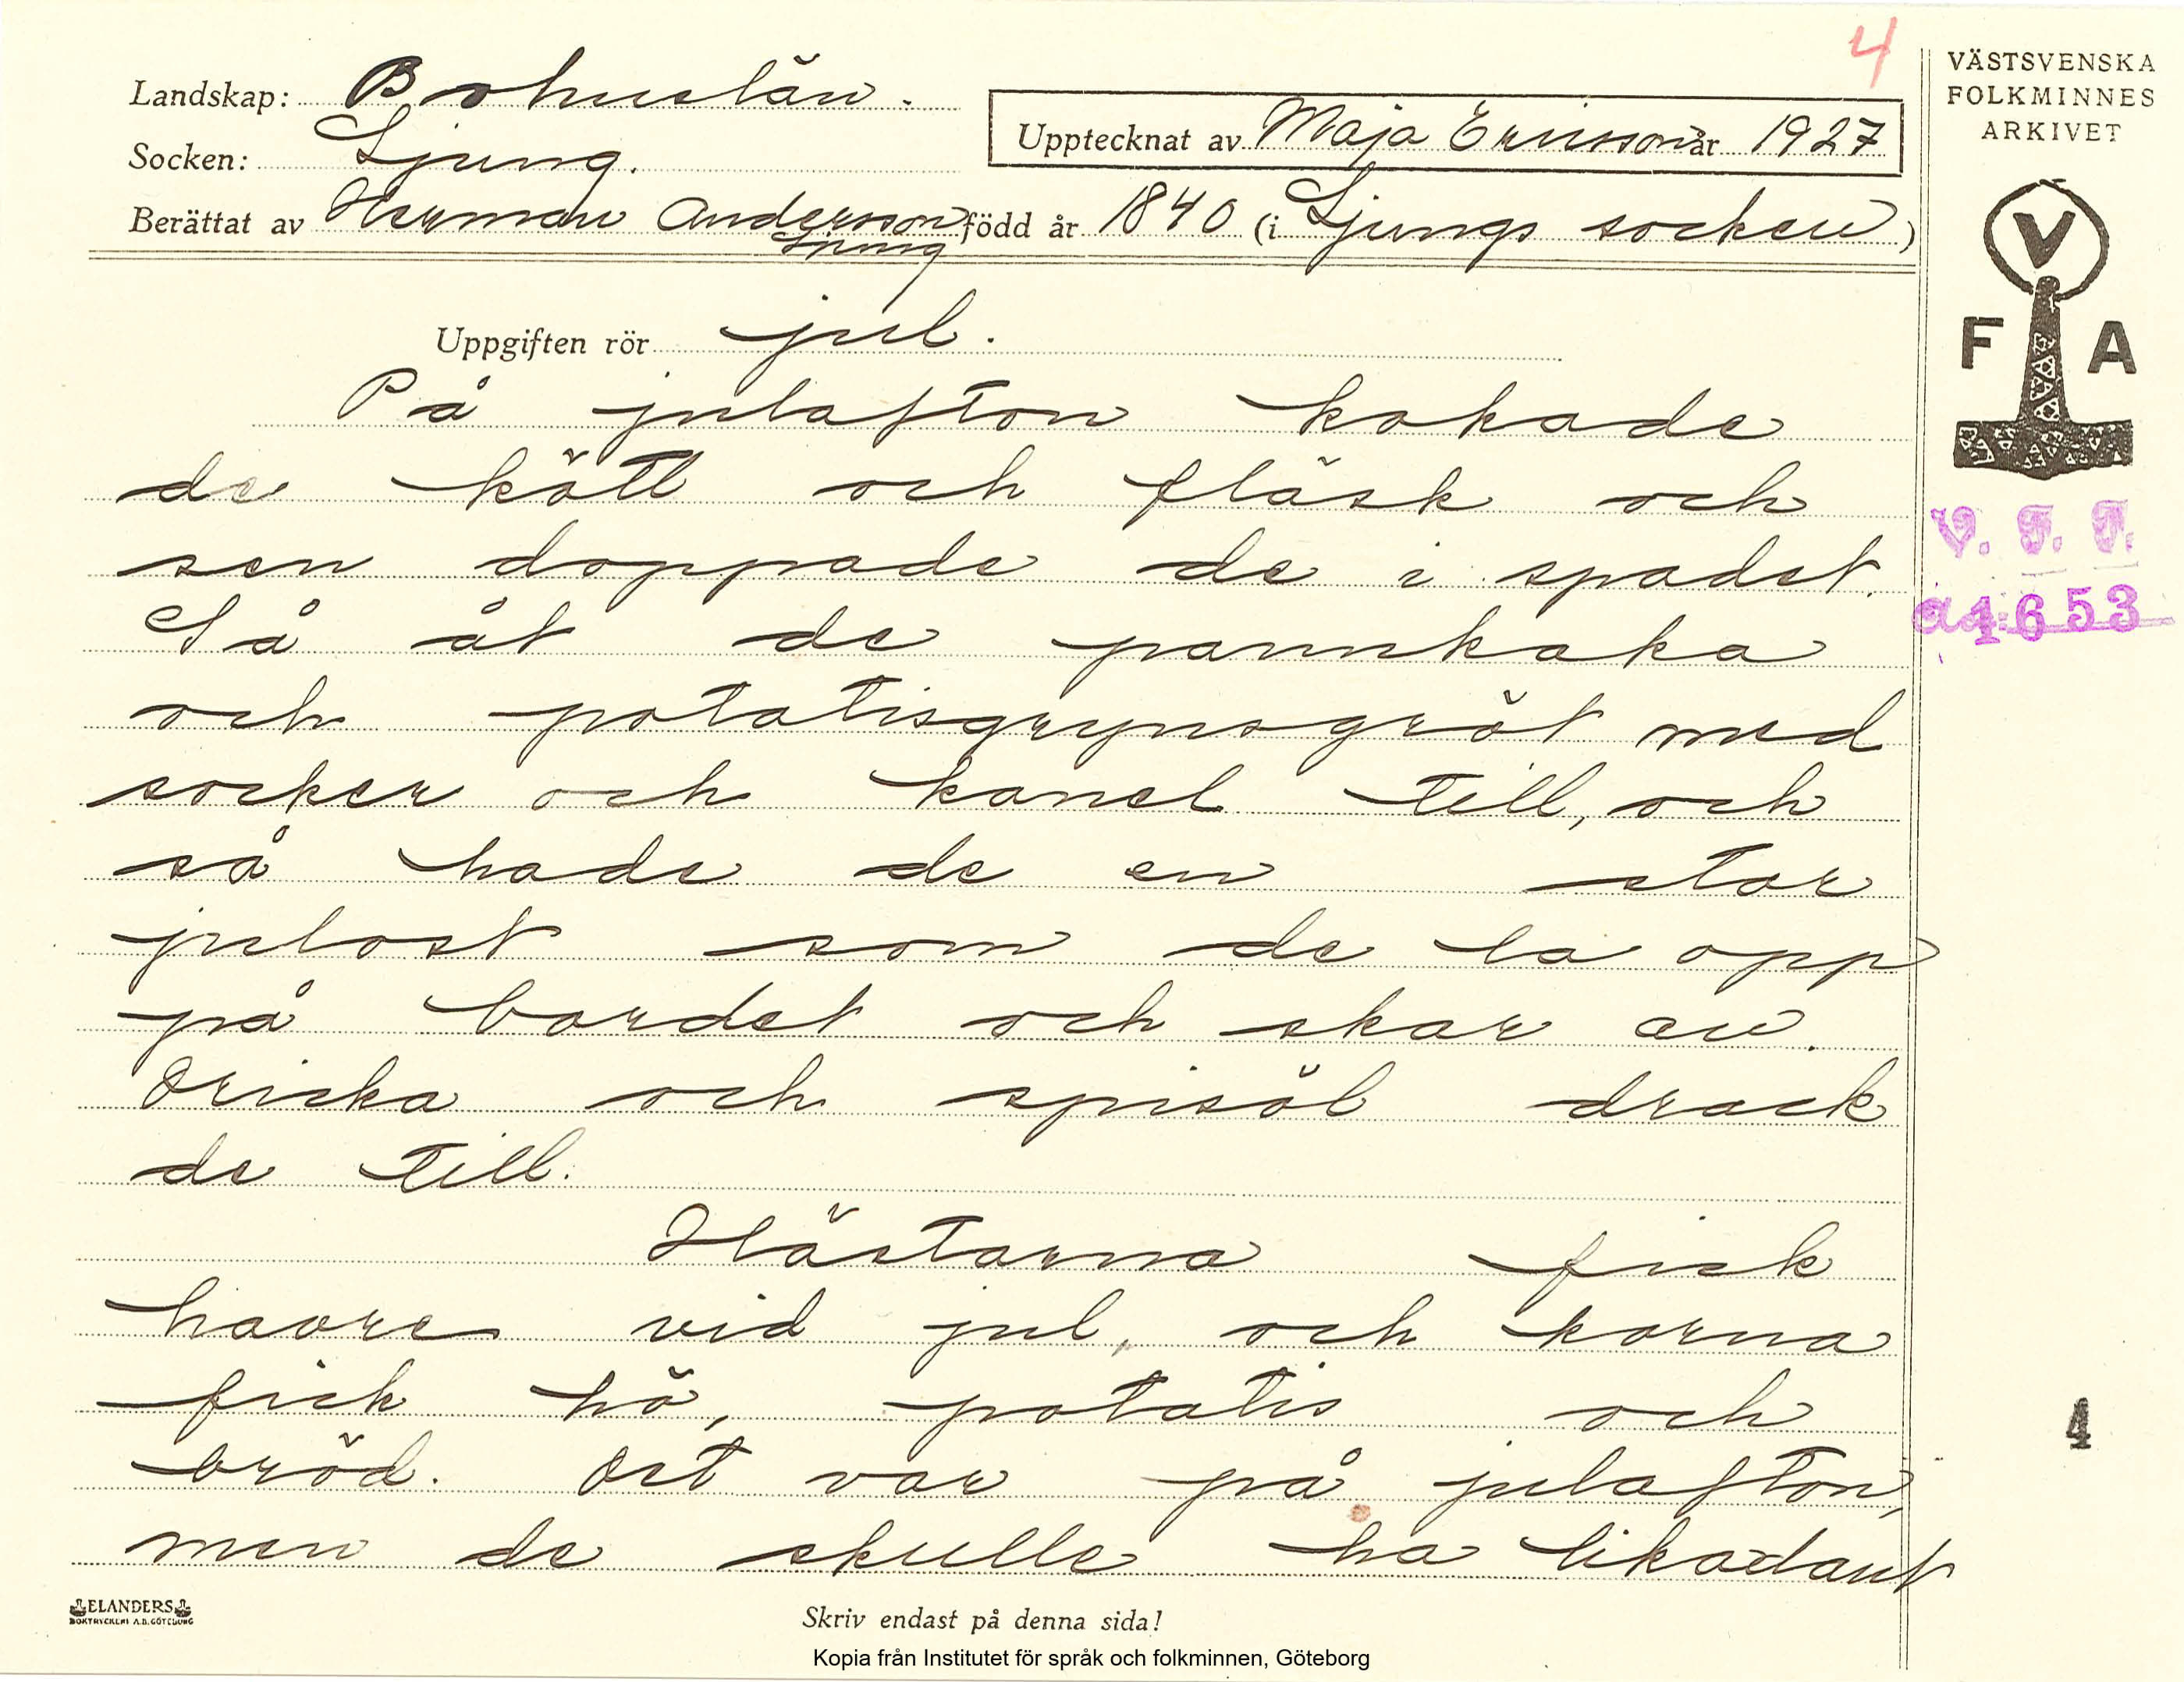 4
Landskap: Bohuslän.
Socken: Ljung.
Upptecknat av Maja Ericsson år 1927
Berättat av Herman Andersson född år 1840 (i Ljungs socken)
Ljung
Uppgiften rör jul.
På julafton kokade
de kött och fläsk och
sen doppade de i spadet.
Så åt de pannkaka
och potatisgrynsgröt med
socker och kanel till, och
så hade de en stor
julost som de la opp
på bordet och skar av.
Dricka och spisöl drack
de till.
Hästarna fick
havre vid jul, och korna
fick hö, potatis och
bröd. Det var på julafton,
men de skulle ha likadant
VÄSTSVENSKA
FOLKMINNES
ARKIVET
V
F A
V. F. F.
1653
4
ELANDERS
BOKTRYCKERI A.B. GÖTEBORG
Skriv endast på denna sida!
Kopia från Institutet för språk och folkminnen, Göteborg